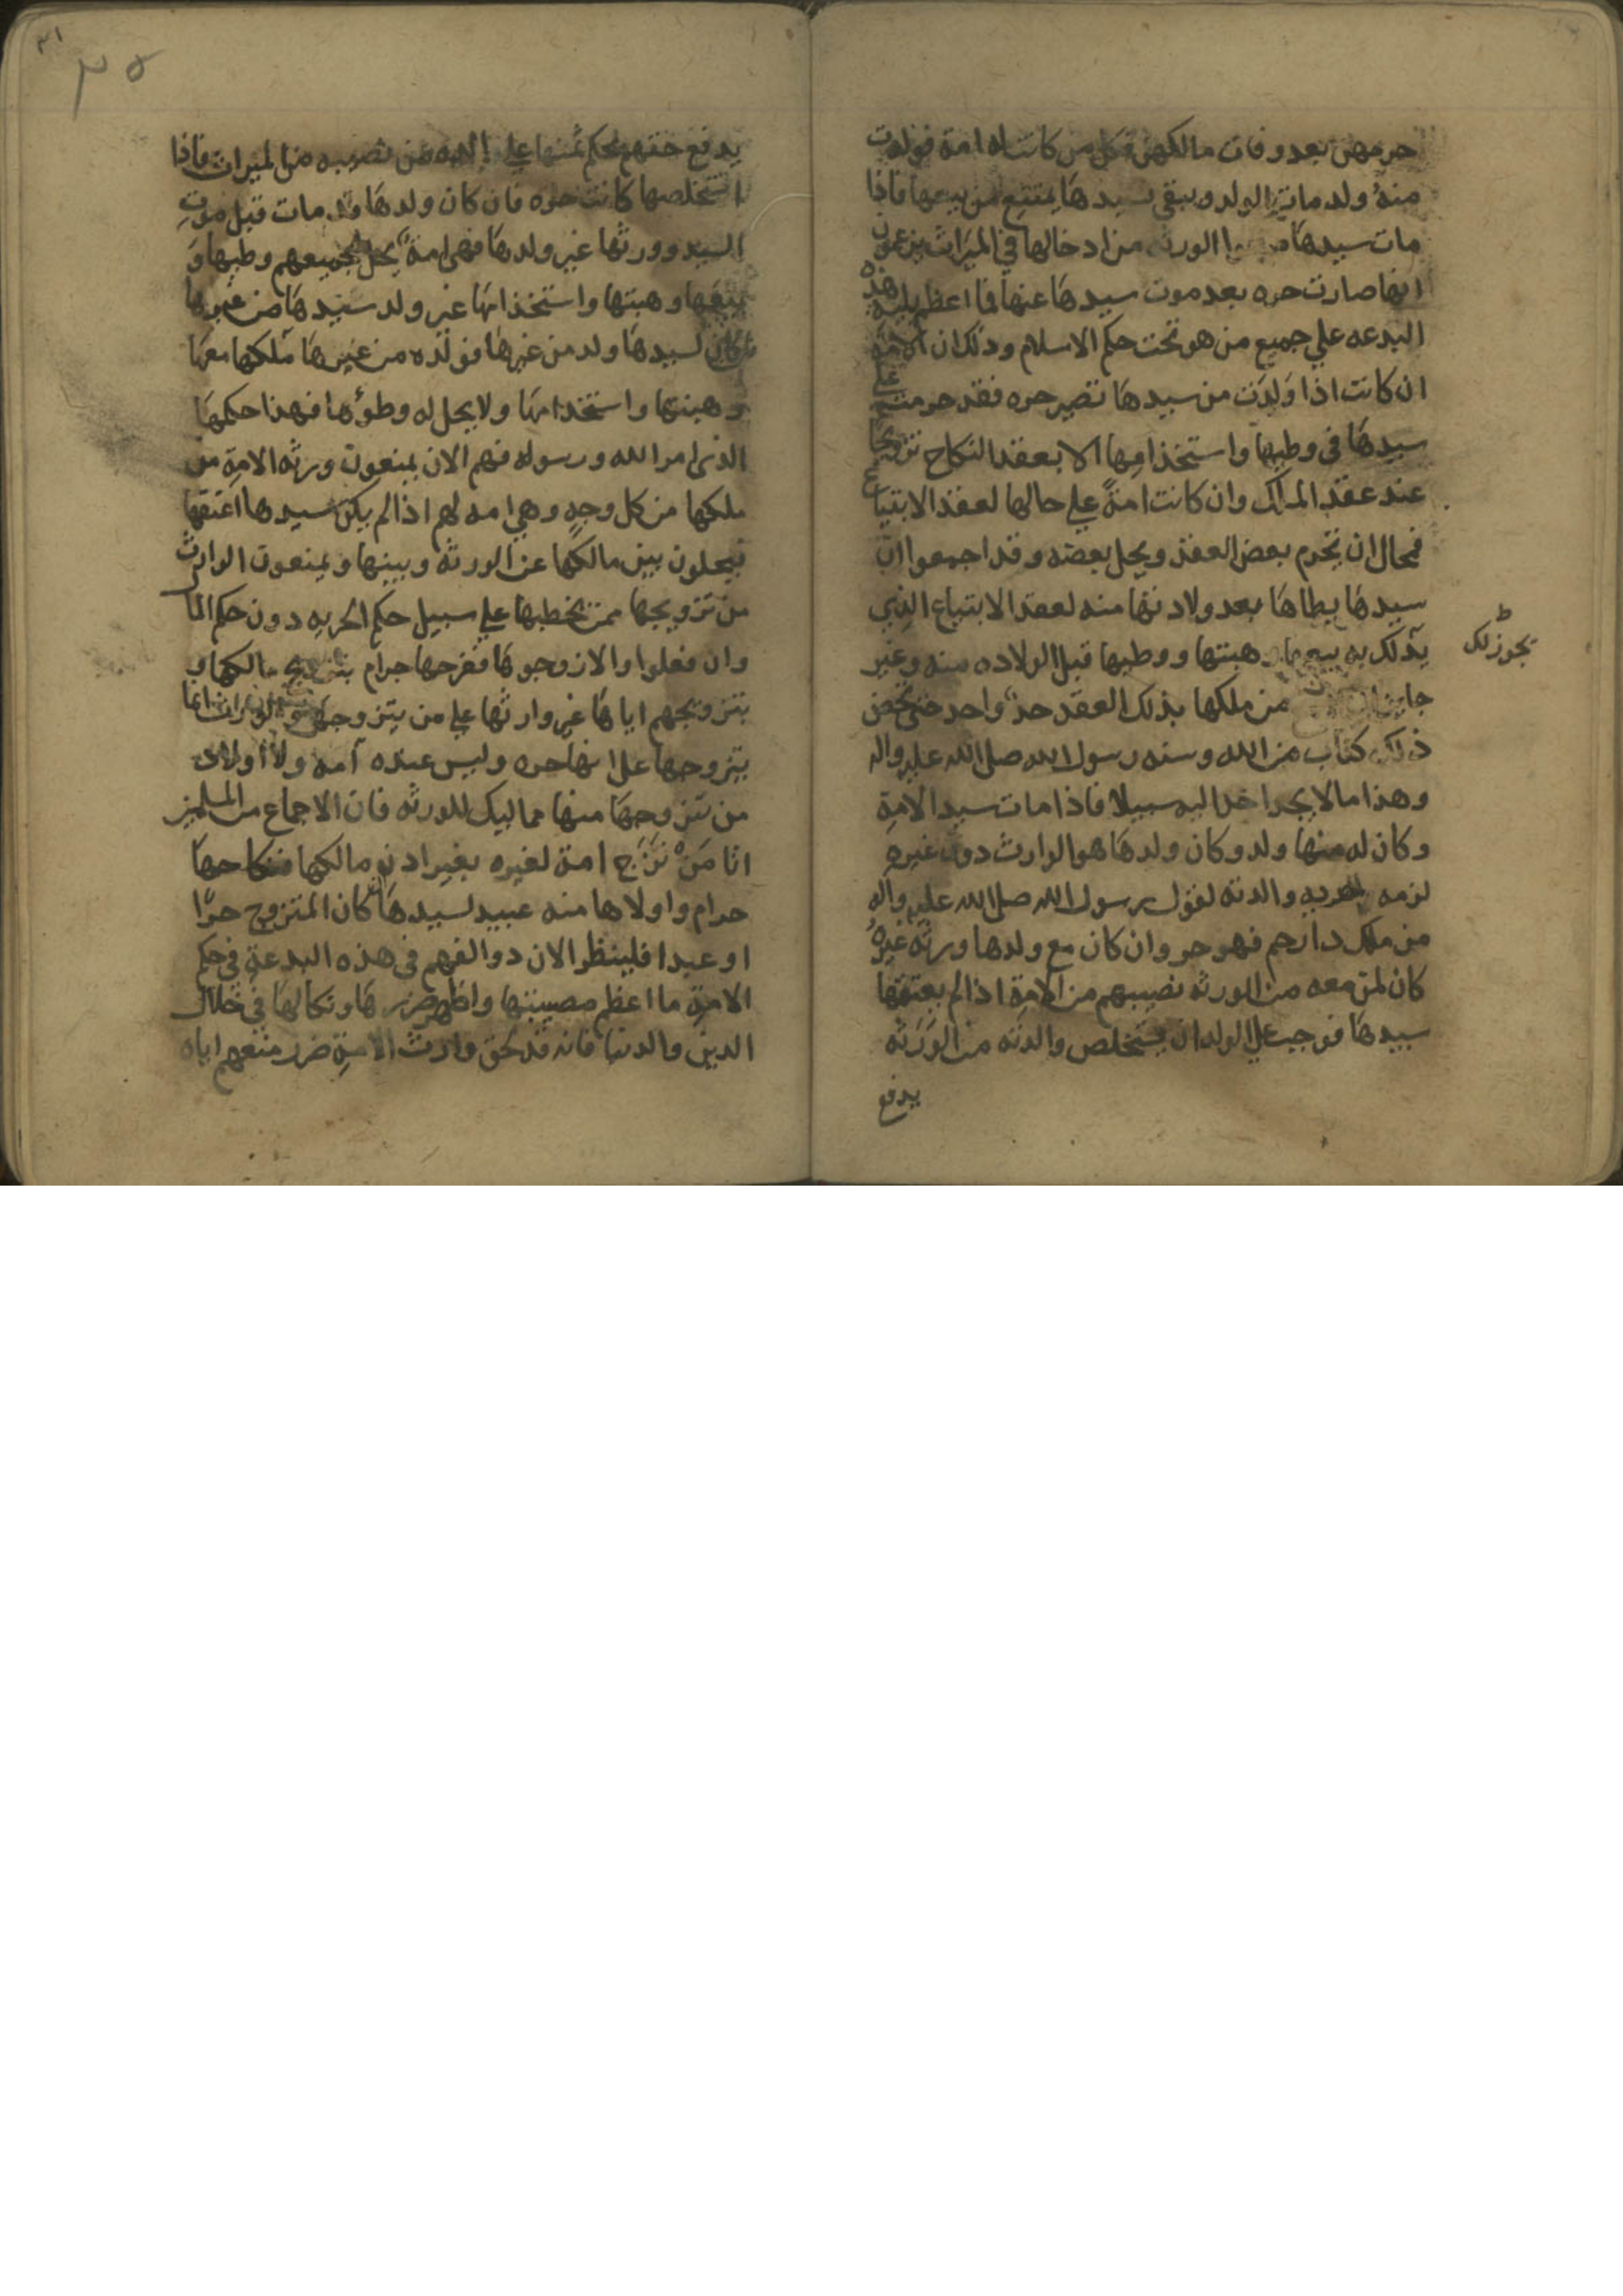 حرمهن بعد وفات مالكهن فكل من كانت له امة فولدت
منهُ ولد مات الولد ويبقى سيدهَا يمتنع من بيعها فاذا
مات سيدهَا الورثه من ادخالها في الميَراث يزعمون
انها صارت حره بعد موت سيدهَا عنها فما اعظم بليه هذه
البدعه علي جميع من هو تحت حكم الاسلام وذلك ان الامة
ان كانت اذا وَلدَت من سيدهَا تصير حره فقد حرمت علي
سيدهَا في وطيها واستخذامِها الا بعقد النكاح تزويجًا
عند عقدِ الملك وان كانت امةً علي حالها لعقد الابتياع
فمحال ان يحرم بعض العقد ويحل بعضه وقد اجمعوا ان
سيدهَا يطاهَا بعد ولادتها منه لعقد الابتياع الذي
يملك به بيعها وهبتها ووطيها قبل الولاده منه وغير
جايز من ملكها بذلك العقد حدٌ واحد حتى يخص
ذلك كتاب من الله وسنه رسول الله صلى الله عليه واله
وهذا ما لا يجدوا خدا اليه سبيلا فاذا مات سيد الامةِ
وكان له منها ولد وكان ولدهَا هو الوارث دون غيرهِ
لزمه الحريه والدته لقول رسول الله صلى الله عليه واله
من ملك دا رحم فهو حر وان كان مع ولدها ورثه غيرهُ
كان لمن معه من الورثه نصيبهم من الامَةِ اذا لم يعتقها
سيدهَا فوجب علي الولد ان يستخلص والدتَه من الوَرَثه
يدفع
يجوز لك
٣١
٣٥
يدفع حقهم بحكم ثمنها علي من نصيبه من الميراث فاذا
استخلصها كانت حره فان كان ولدهَا قد مات قبل موت
السيد وورثها غير ولدهَا فهي امةٌ يحل لجميعهم وطيها وَ
بيعها وهبتها واستخذامهَا غير ولد سيدهَا من غيرها
فان كان لسيدهَا ولد من غيرهَا فولدُه من غيرهَا تملكها معهَا
وهبتها واستخدامهَا ولا يحل له وطؤها فهذا حكمهَا
الذى امر الله ورسوله فهم الان يمنعون ورثه الامَةِ من
ملكها من كل وجهٍ وهي امه لهم اذا لم يكن سيدها اعتقها
فيحلون بين مالكهَا عن الورثه وبينها ويمنعون الوارث
من تزويجها ممن يخطبها علي سبيل حكم الحريه دون حكم الما
وان فعلوا والا زوجوهَا ففرجها حرام بتزويج مالكها و
بتزويجهم اياهَا غير وارثها علي من يتزوجها انما
يتزوجها على انها حره وليس عنده آمه ولا اولاد
من تَزوجهَا منها مماليك للورثه فان الاجماع من المسلمين
انا مَنْ تزَوَج امة لغيره بغير ادن مالكها فنكاحهَا
حرام واولادها منه عبيد لسيدهَا كان المتزوج حرًا
او عبدا فلينظر الان دو الفهم في هذه البدعةِ في حكم
الامةِ ما اعظم مصيبتها واظهر ضررهَا ونكالهَا في خلال
الدين والدنيا فانه قد لحق وارث الامةِ ضرر منعهم اياه